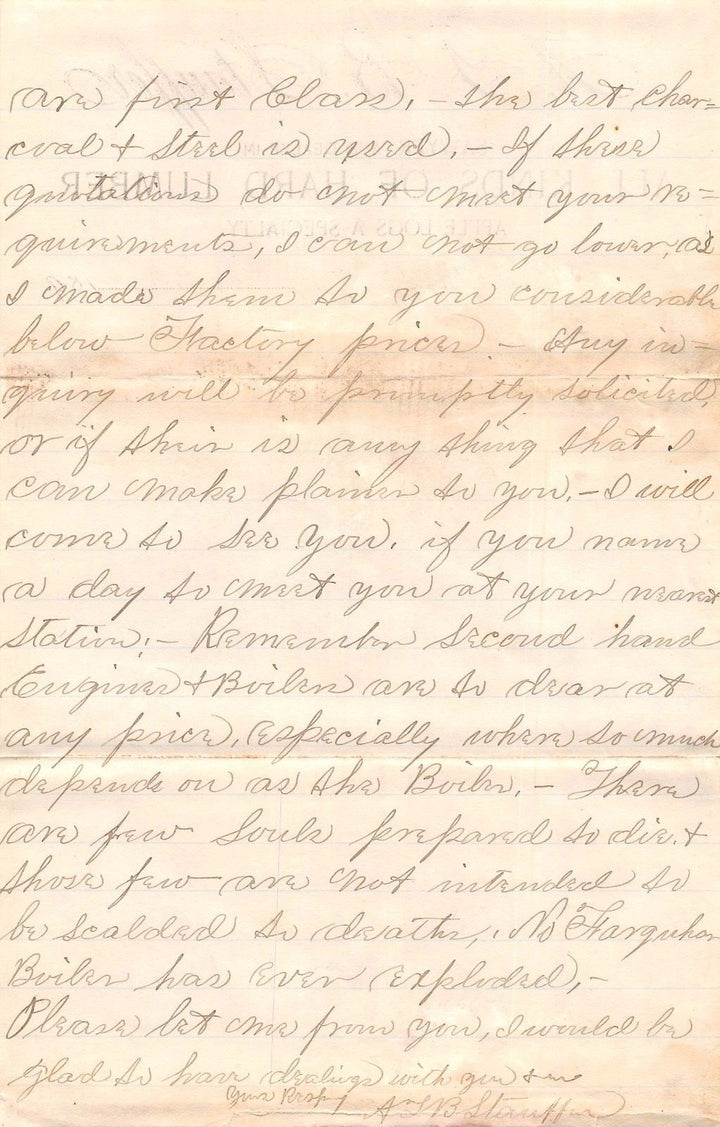 are first Class. - the best Char=
coal & Steel is used. - If these
quotations do not meet your re=
quirements, I can not go lower, as
I made them to you considerable
below Factory prices. - Any in=
quiry will be promptly solicited,
or if their is any thing that I
can make plainer to you. - I will
come to see you. if you name
a day to meet you at your nearest
Station. - Remember Second hand
Engines & Boilers are to dear at
any price, especially where so much
depends on as the Boiler. - There
are few Souls prepared to die. &
those few are not intended to
be scalded to death. No Farquhar
Boiler has ever exploded, -
Please let me from you, I would be
glad to have dealings with you &
Yours Respy
Stauffer
ALL KINDS OF HARD LUMBER
APPLE LOGS A SPECIALTY